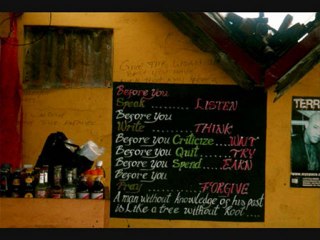 Before you
Speak ......... LISTEN
Before you
Write ......... THINK
Before you Criticize....WAIT
Before you Quit ......TRY
Before you Spend.....EARN
Before you
Pray ........... FORGIVE
A man without knowledge of his past
is like a tree without Root ....
TERR